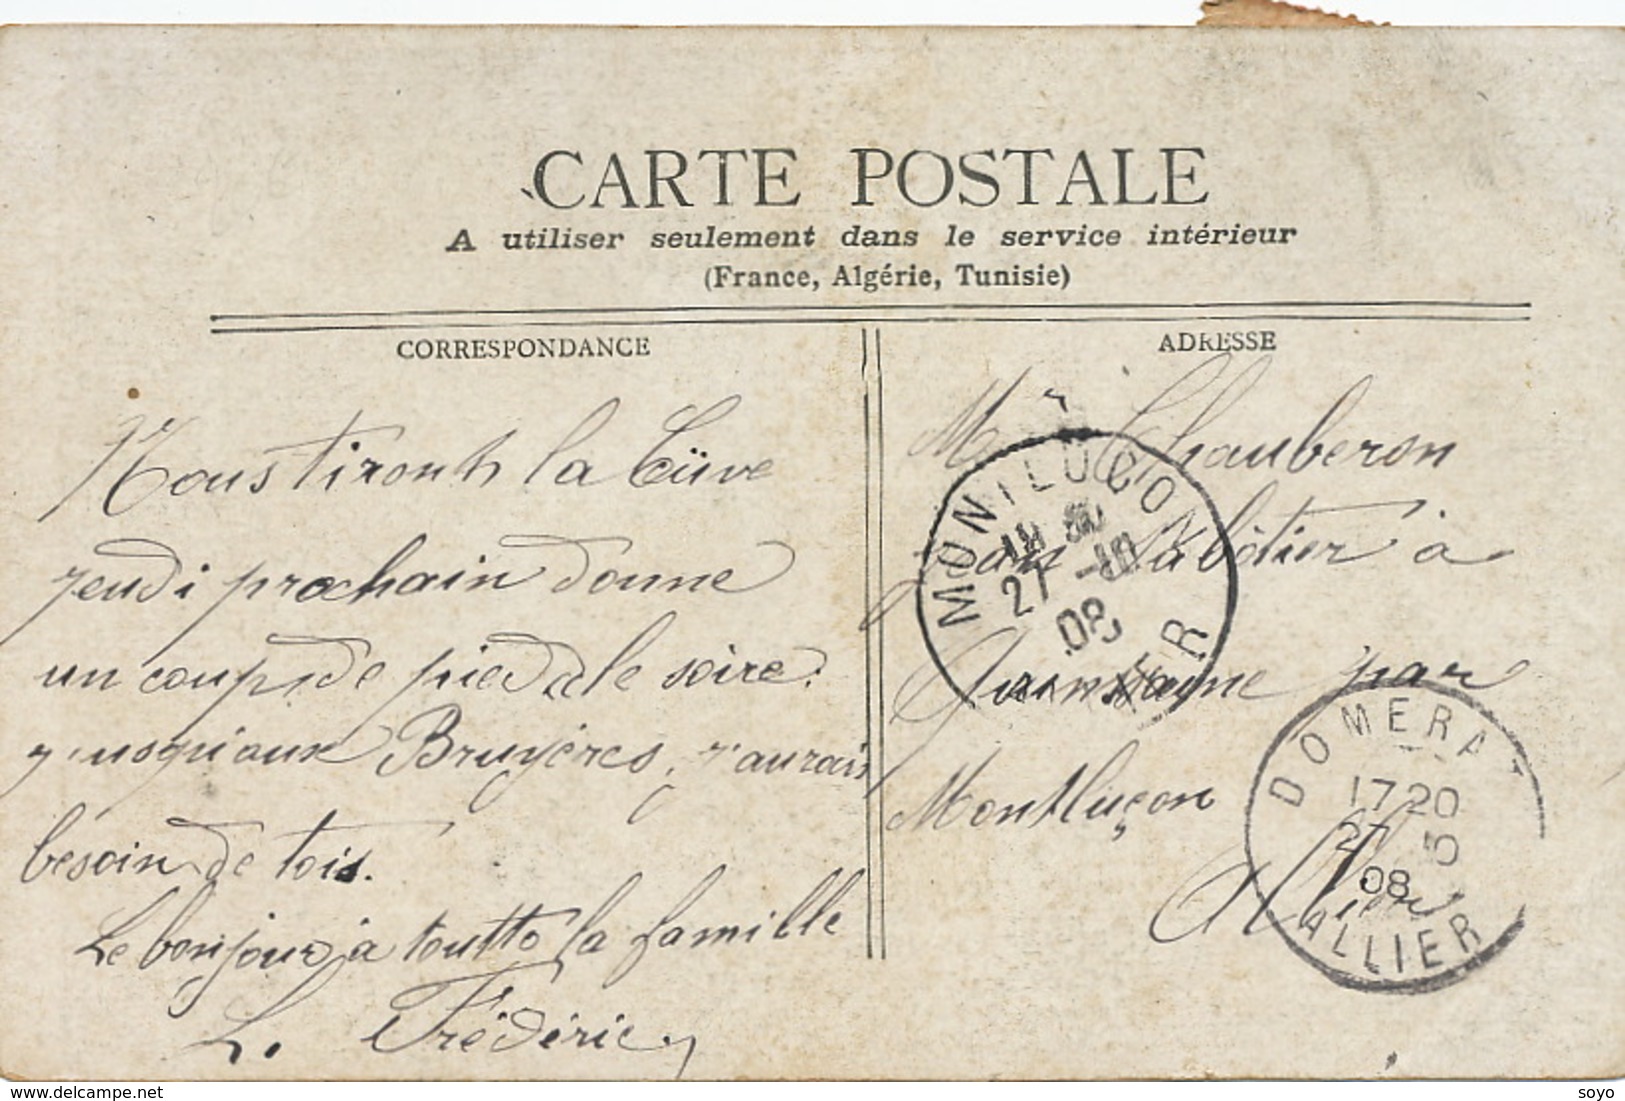 CARTE POSTALE
A utiliser seulement dans le service intérieur
(France, Algérie, Tunisie)
CORRESPONDANCE
Nous tironts la Cüve
jeudi prochain donne
un coup de pied le soire
jusqu'aux Bruyéres, j'aurais
bésoin de tois.
Le bonjour à toutte la famille
L. Frédéric
ADRESSE
Mr Chauberon
Jean Sabôtier à
par
Montluçon
Allier
MONTLUCON
27 -10
08
DOMERAT
17 20
27
08
ALLIER
delcampe.net
soyo